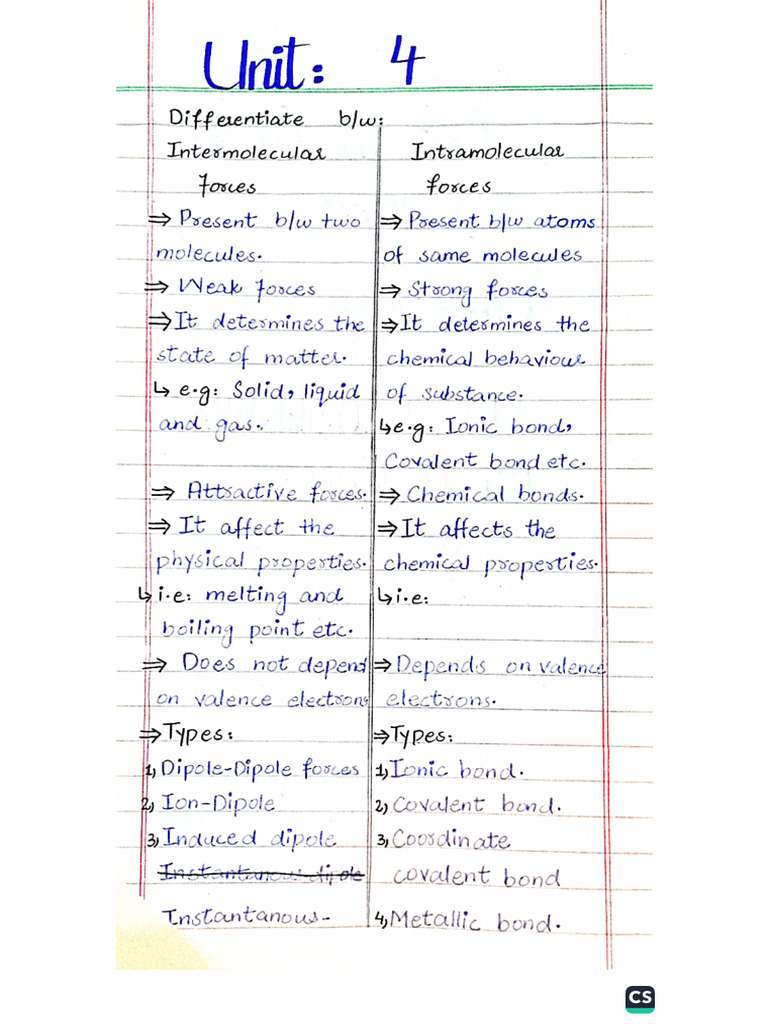 Unit: 4
Differentiate b/w:
Intermolecular
forces
⇒ Present b/w two
molecules.
⇒ Weak forces
⇒ It determines the
state of matter.
↳ e.g: Solid, liquid
and gas.
⇒ Attractive forces.
⇒ It affect the
physical properties.
↳ i.e: melting and
boiling point etc.
⇒ Does not depend
on valence electrons
⇒ Types:
1, Dipole-Dipole forces
2, Ion-Dipole
3, Induced dipole
Instantanous dipole
Instantanous-
Intramolecular
forces
⇒ Present b/w atoms
of same molecules
⇒ Strong forces
⇒ It determines the
chemical behaviour
of substance.
↳ e.g: Ionic bond,
Covalent bond etc.
⇒ Chemical bonds.
⇒ It affects the
chemical properties.
↳ i.e:
⇒ Depends on valence
electrons.
⇒ Types:
1, Ionic bond.
2, Covalent bond.
3, Coordinate
covalent bond
4, Metallic bond.
CS